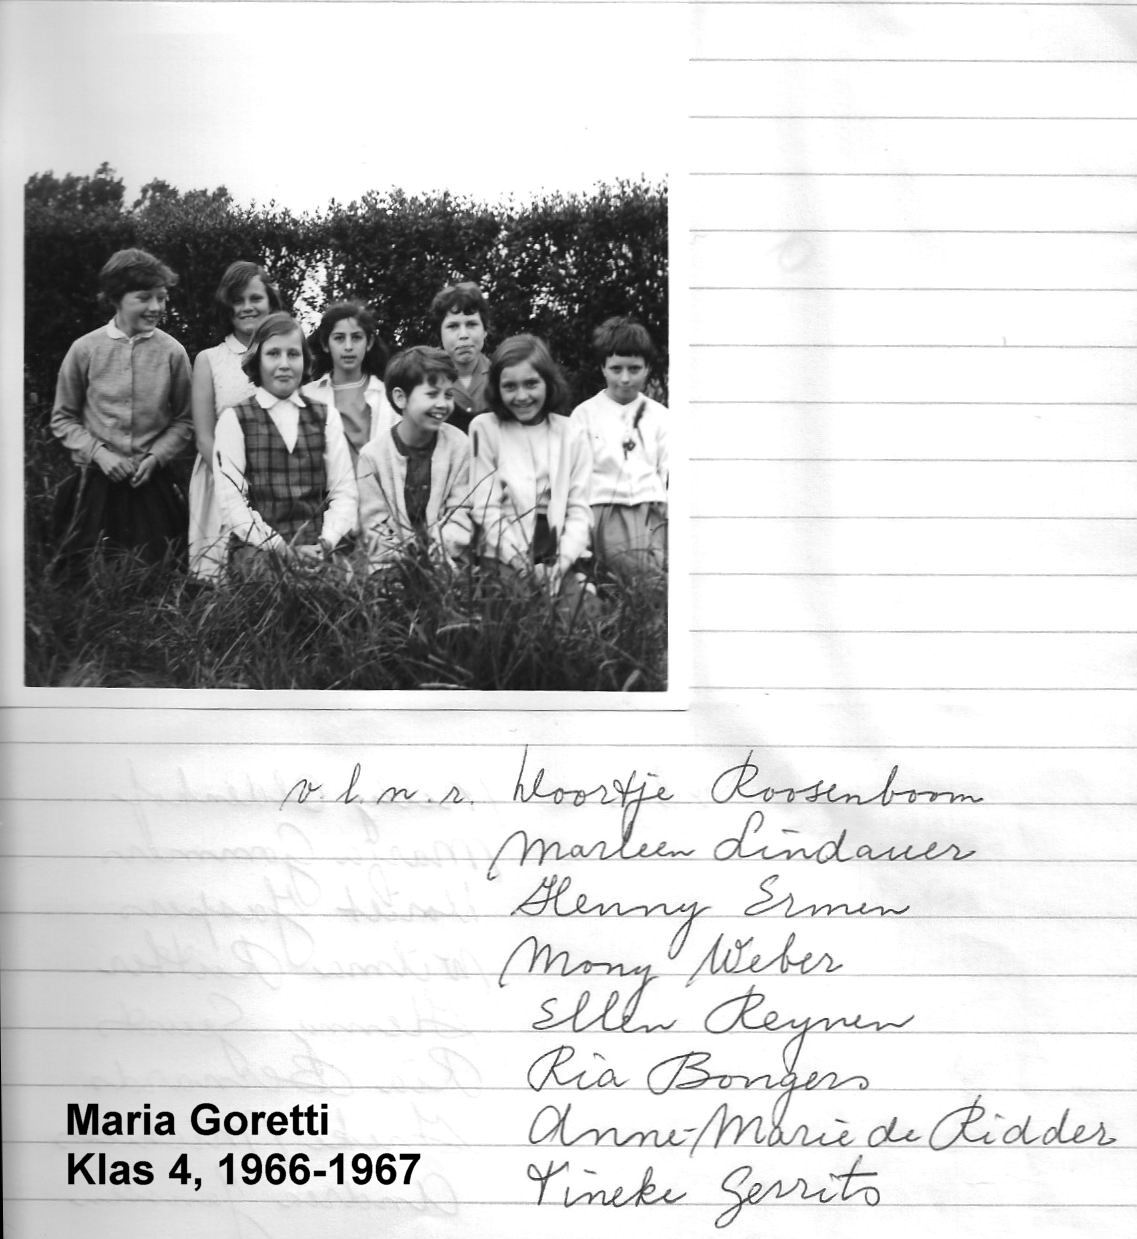 v. l. n. r. Noortje Roosenboom
Marleen Lindauer
Henny Ermen
Mony Weber
Ellen Reynen
Ria Bongers
Anne-Marie de Ridder
Tineke Gerrits
Maria Goretti
Klas 4, 1966-1967